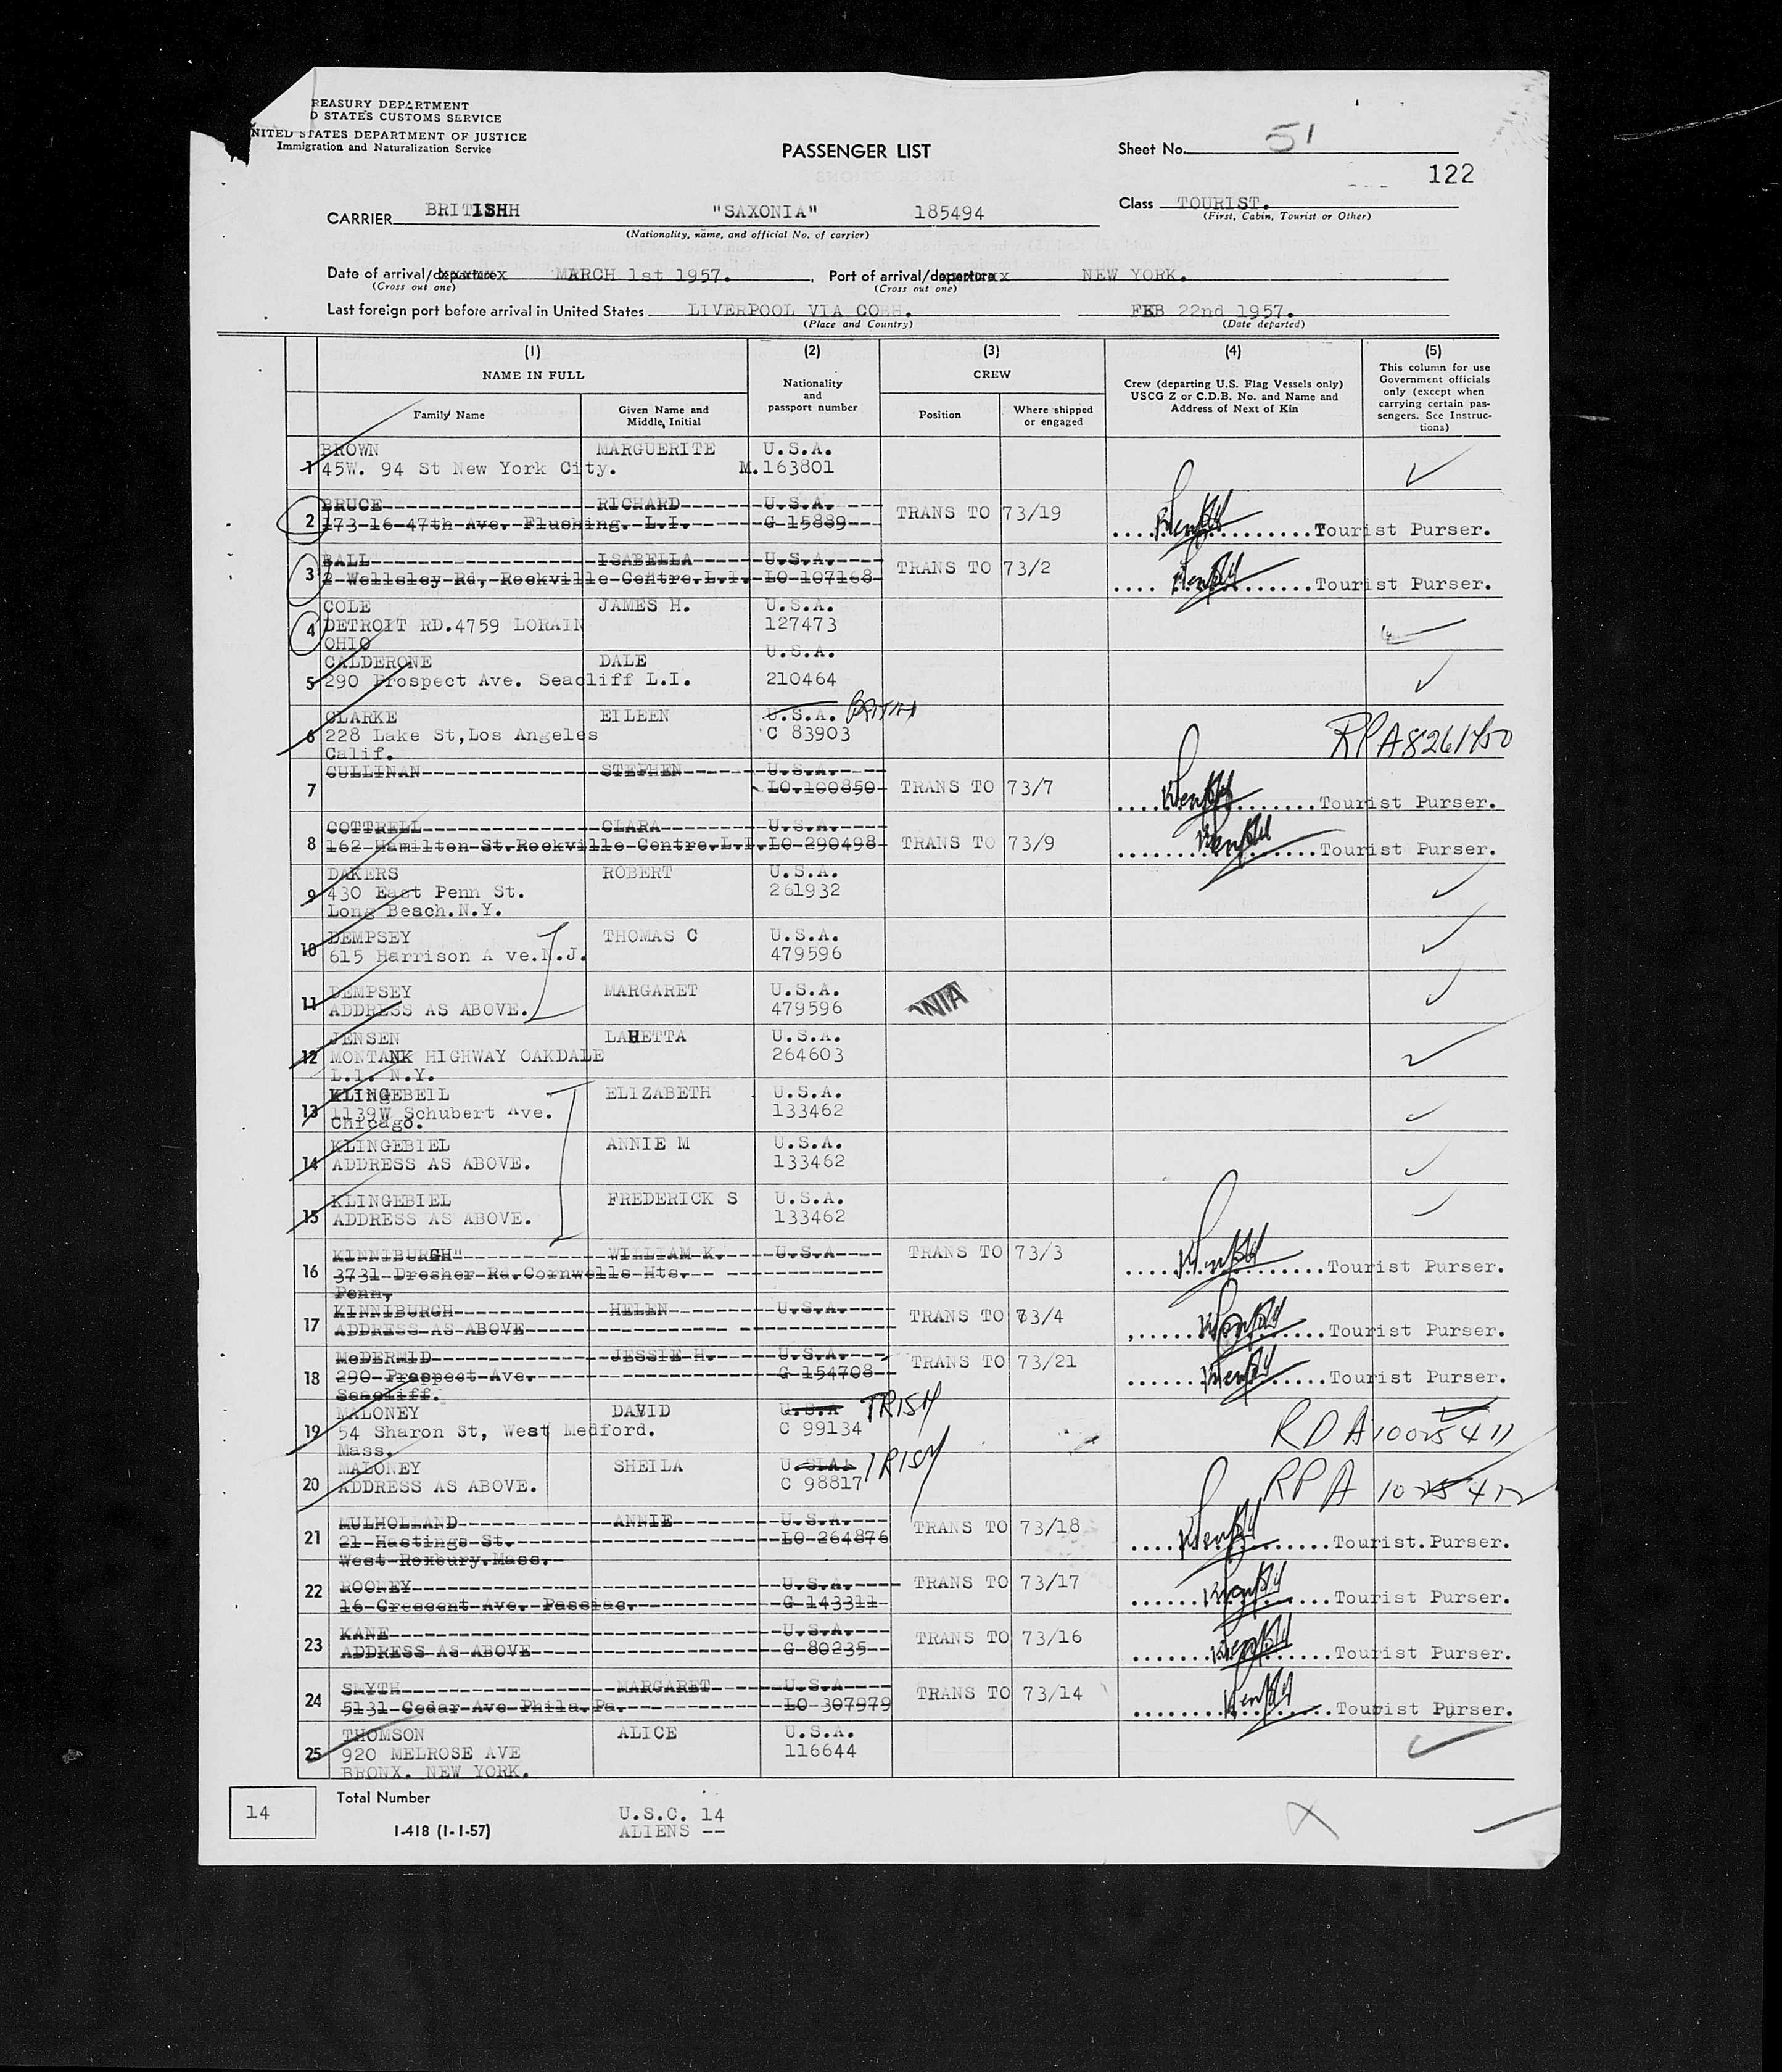 REASURY DEPARTMENT
D STATES CUSTOMS SERVICE
NITED STATES DEPARTMENT OF JUSTICE
Immigration and Naturalization Service
PASSENGER LIST
Sheet No. 51
122
CARRIER BRITISHH "SAXONIA" 185494
(Nationality, name, and official No. of carrier)
Class TOURIST.
(First, Cabin, Tourist or Other)
Date of arrival/departure MARCH 1st 1957. , Port of arrival/departure NEW YORK.
(Cross out one) (Cross out one)
Last foreign port before arrival in United States LIVERPOOL VIA COBH. FEB 22nd 1957.
(Place and Country) (Date departed)
(1) (2) (3) (4) (5)
NAME IN FULL
Nationality
and
passport number
CREW
Crew (departing U.S. Flag Vessels only)
USCG Z or C.D.B. No. and Name and
Address of Next of Kin
This column for use
Government officials
only (except when
carrying certain pas-
sengers. See Instruc-
tions)
Family Name
Given Name and
Middle Initial
Position
Where shipped
or engaged
BROWN MARGUERITE U.S.A.
1 45W. 94 St New York City. M.163801
BRUCE RICHARD U.S.A.
2 173-16-47th Ave. Flushing. L.I. G 15889 TRANS TO 73/19 Tourist Purser.
BALL ISABELLA U.S.A.
3 2 Wellsley Rd, Rockville Centre.L.I. LO 107168 TRANS TO 73/2 Tourist Purser.
COLE JAMES H. U.S.A.
4 DETROIT RD.4759 LORAIN 127473
OHIO
CALDERONE DALE U.S.A.
5 290 Prospect Ave. Seacliff L.I. 210464
CLARKE EILEEN U.S.A. BRITISH
6 228 Lake St,Los Angeles C 83903 RPA8261450
Calif.
CULLINAN STEPHEN U.S.A.
7 LO.100850 TRANS TO 73/7 Tourist Purser.
COTTRELL CLARA U.S.A.
8 162 Hamilton St.Rockville Centre.L.I. LO 290498 TRANS TO 73/9 Tourist Purser.
DAKERS ROBERT U.S.A.
9 430 East Penn St. 261932
Long Beach.N.Y.
10 DEMPSEY THOMAS C U.S.A.
615 Harrison A ve.N.J. 479596
DEMPSEY MARGARET U.S.A.
11 ADDRESS AS ABOVE. 479596 ONIA
JENSEN LAHETTA U.S.A.
12 MONTANK HIGHWAY OAKDALE 264603
L.I. N.Y.
KLINGEBEIL ELIZABETH U.S.A.
13 1139W Schubert Ave. 133462
Chicago.
KLINGEBIEL ANNIE M U.S.A.
14 ADDRESS AS ABOVE. 133462
KLINGEBIEL FREDERICK S U.S.A.
15 ADDRESS AS ABOVE. 133462
KINNIBURGH" WILLIAM K. U.S.A TRANS TO 73/3
16 3731 Dresher Rd.Cornwells Hts. Tourist Purser.
Penn.
KINNIBURGH HELEN U.S.A.
17 ADDRESS AS ABOVE TRANS TO 73/4 Tourist Purser.
McDERMID JESSIE H. U.S.A. TRANS TO 73/21
18 290 Prospect Ave. G 154708 Tourist Purser.
Seacliff.
MALONEY DAVID U.S.A IRISH
19 54 Sharon St, West Medford. C 99134 RDA10025411
Mass.
MALONEY SHEILA U.S.A. IRISH
20 ADDRESS AS ABOVE. C 98817 RPA 1025412
MULHOLLAND ANNIE U.S.A. TRANS TO 73/18
21 21 Hastings St. LO 264876 Tourist.Purser.
West Roxbury.Mass.
ROONEY U.S.A. TRANS TO 73/17
22 16 Crescent Ave. Passiac. G 143311 Tourist Purser.
KANE U.S.A. TRANS TO 73/16
23 ADDRESS AS ABOVE G 80235 Tourist Purser.
SMYTH MARGARET U.S.A TRANS TO 73/14
24 5131 Cedar Ave Phila.Pa. LO 307979 Tourist Purser.
THOMSON ALICE U.S.A.
25 920 MELROSE AVE 116644
BRONX. NEW YORK.
14 Total Number U.S.C. 14
I-418 (1-1-57) ALIENS --